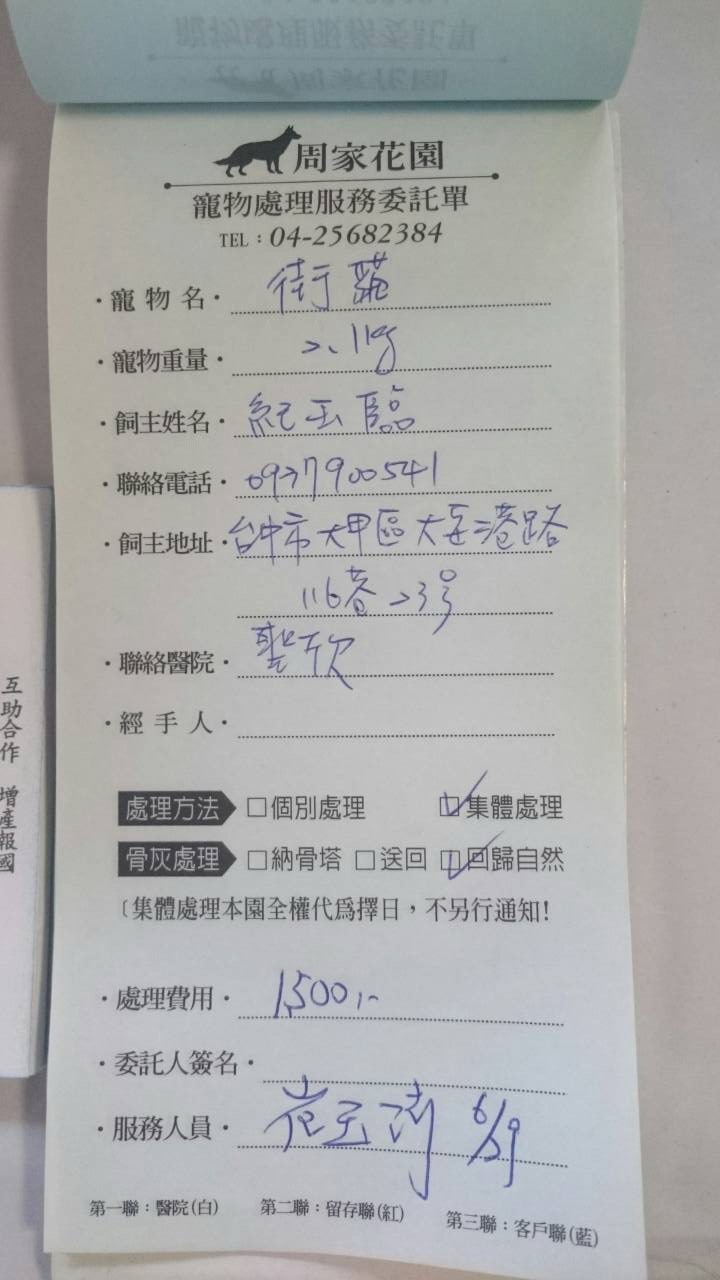 周家花園
寵物處理服務委託單
TEL：04-25682384
・寵物名・ 街貓
・寵物重量・ 2.1kg
・飼主姓名・ 紀玉臨
・聯絡電話・ 0937900541
・飼主地址・ 台中市大甲區大安港路
116巷23号
・聯絡醫院・ 聖欣
・經手人・
處理方法 □個別處理 ☑集體處理
骨灰處理 □納骨塔 □送回 ☑回歸自然
〔集體處理本園全權代為擇日，不另行通知!
・處理費用・ 1,500,-
・委託人簽名・
・服務人員・ 6/29
第一聯：醫院(白) 第二聯：留存聯(紅) 第三聯：客戶聯(藍)
互助合作 增產報國